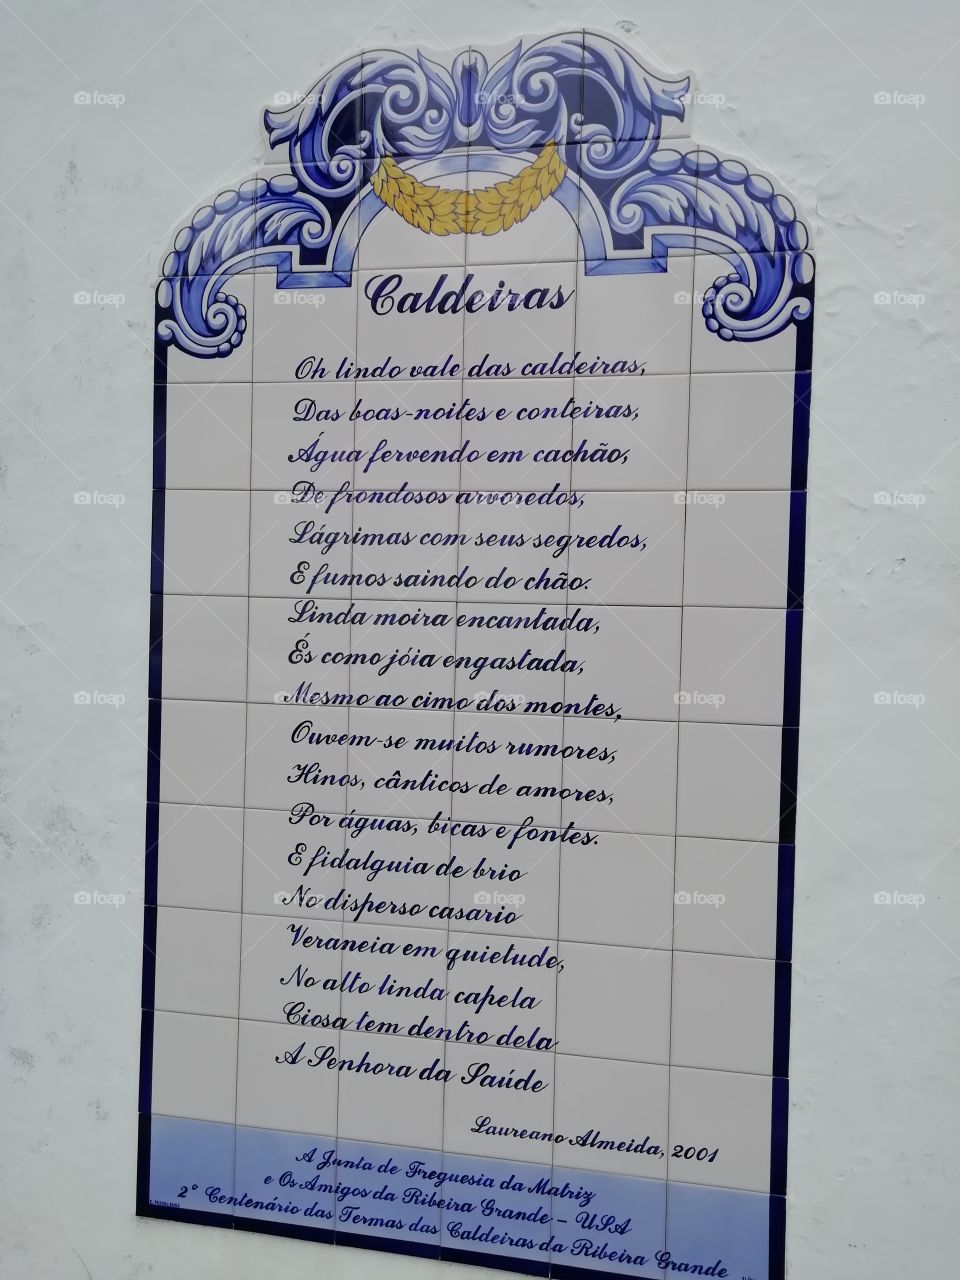 Caldeiras
Oh lindo vale das caldeiras,
Das boas-noites e conteiras,
Água fervendo em cachão,
De frondosos arvoredos,
Lágrimas com seus segredos,
E fumos saindo do chão.
Linda moira encantada,
És como jóia engastada,
Mesmo ao cimo dos montes,
Ouvem-se muitos rumores,
Hinos, cânticos de amores,
Por águas, bicas e fontes.
E fidalguia de brio
No disperso casario
Veraneia em quietude,
No alto linda capela
Ciosa tem dentro dela
A Senhora da Saúde
Laureano Almeida, 2001
A Junta de Freguesia da Matriz
e Os Amigos da Ribeira Grande - USA
2º Centenário das Termas das Caldeiras da Ribeira Grande
foap